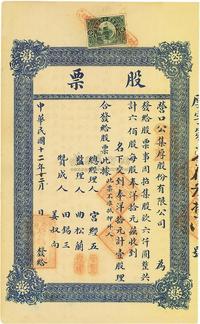 股票
營口公集厚股份有限公司 為
發給股票事周招集股欵六仟圓整共
計六佰股每股奉洋拾元茲收到
名下交到奉洋拾元計壹股理
合發給股票此據 此票不準抵押外人
總經理人 宮經五
監理人 曲松蘭
贊成人 田錫三
姜叔向
中華民國十二年十二月 日 發給